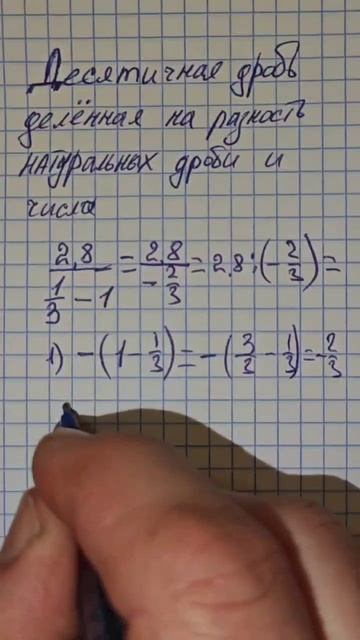 Десятичная дробь
делённая на разность
натуральных дроби и
числа
2,8/(1/3 − 1) = 2,8/(−2/3) = 2,8 : (−2/3) =
1) −(1 − 1/3) = −(3/3 − 1/3) = −2/3